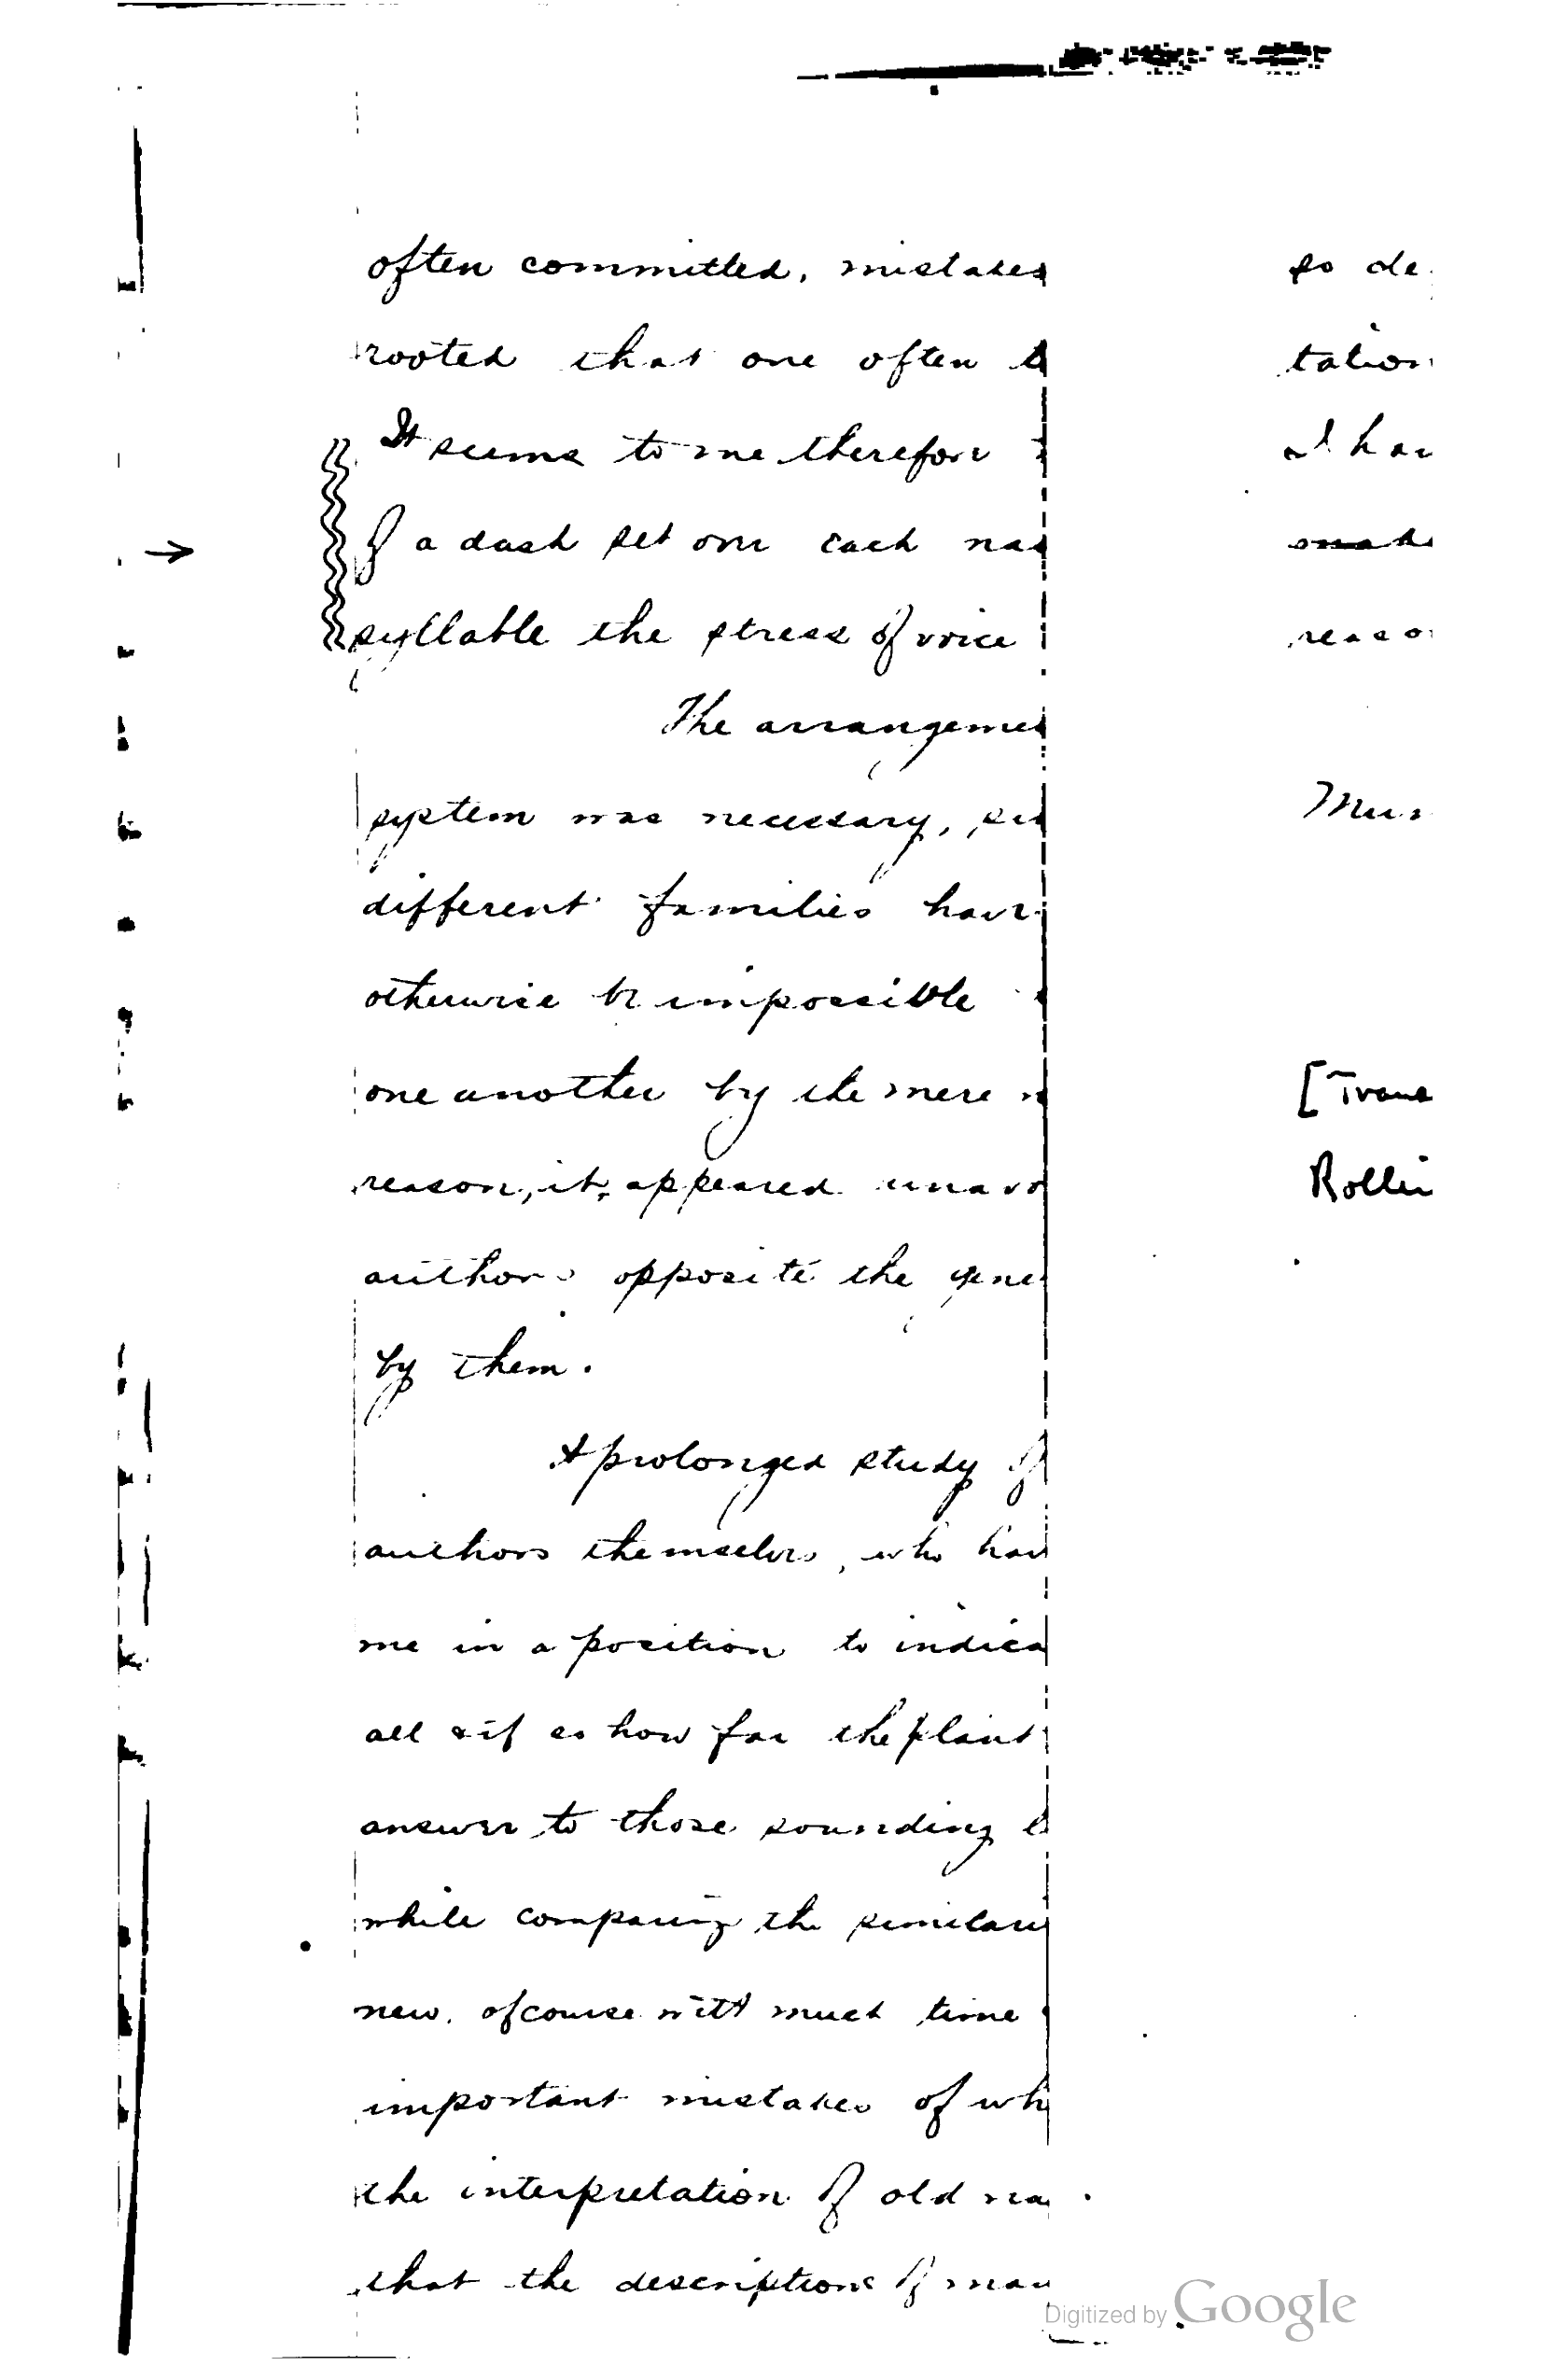 often committed, mistakes
rooted that one often
It seems to me therefore
of a dash set over each
syllable the stress of voice
The arrangemen
system was necessary,
different families have
otherwise be impossible
one another by the mere
reason, it, appeared unavo
authors opposite the gene
by them.
A prolonged study of
authors themselves, who hav
me in a position to indica
all & if so how far the plant
answer to those sounding
while comparing the similari
new. of course with much time
important mistakes of wh
the interpretation of old na
that the descriptions of man
so de
tation
I hav
made
reason
Mun
[Trans
Rollin
Digitized by Google